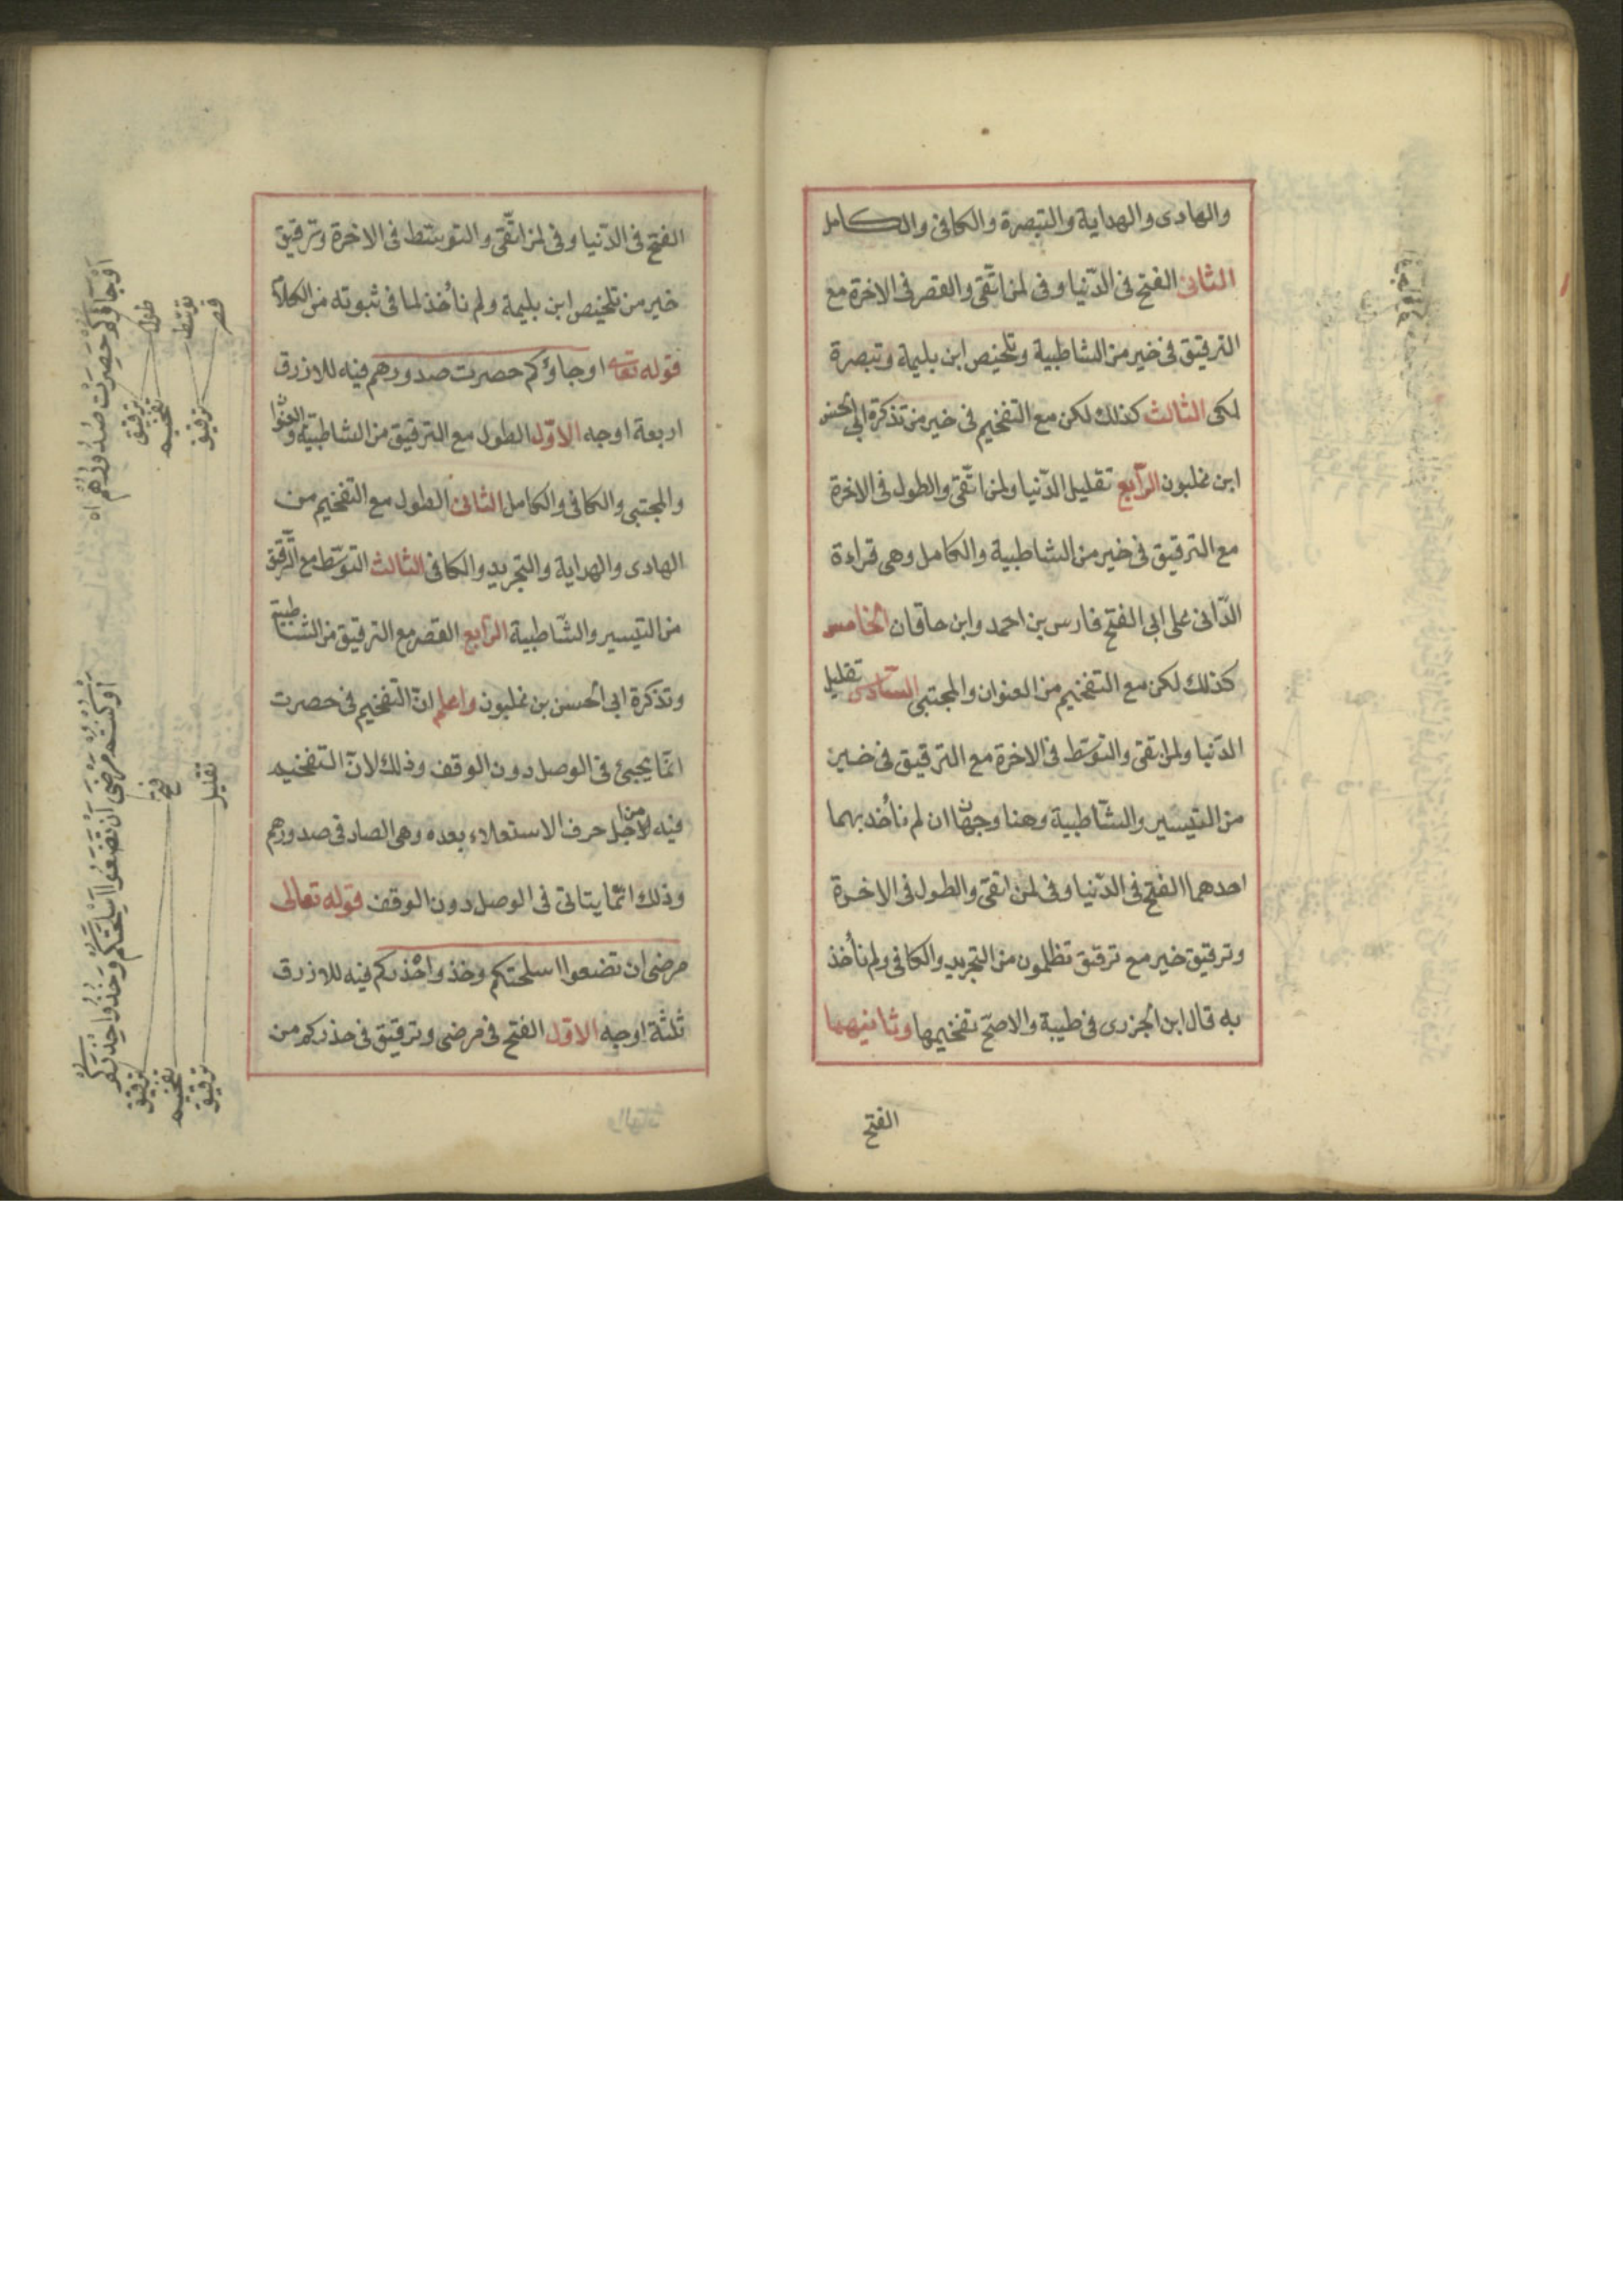 والهادى والهداية والتبصرة والكافى والكامل
الثانى الفتح فى الدّنيا وفى لمن اتّقى والقصر فى الاخرة مع
الترقيق فى خير من الشاطبية وتلخيص ابن بليمة وتبصرة
لمكى الثالث كذلك لكن مع التفخيم فى خير من تذكرة ابى الحسن
ابن غلبون الرّابع تقليل الدّنيا ولمن اتّقى والطول فى الاخرة
مع الترقيق فى خير من الشاطبية والكامل وهى قراءة
الدّانى على ابى الفتح فارس بن احمد وابن خاقان الخامس
كذلك لكن مع التفخيم من العنوان والمجتبى السّادس تقليل
الدّنيا ولمن اتقى والتوسّط فى الاخرة مع الترقيق فى خير
من التيسير والشّاطبية وهنا وجهان لم نأخذ بهما
احدهما الفتح فى الدّنيا وفى لمن اتقى والطول فى الاخرة
وترقيق خير مع ترقيق تظلمون من التجريد والكافى ولم نأخذ
به قال ابن الجزرى فى طيبة والاصحّ تفخيمها وثانيهما
الفتح
الفتح فى الدّنيا وفى لمن اتّقى والتوسّط فى الاخرة وترقيق
خير من تلخيص ابن بليمة ولم نأخذ لما فى ثبوته من الكلام
قوله تعالى او جاؤكم حصرت صدورهم فيه للازرق
اربعة اوجه الاوّل الطول مع الترقيق من الشاطبية والعنوان
والمجتبى والكافى والكامل الثانى الطول مع التفخيم من
الهادى والهداية والتجريد والكافى الثالث التوسّط مع الترقيق
من التيسير والشّاطبية الرّابع القصر مع الترقيق من الشاطبية
وتذكرة ابى الحسن بن غلبون واعلم انّ التفخيم فى حصرت
انّما يجيئ فى الوصل دون الوقف وذلك لانّ التفخيم
فيه من اجل حرف الاستعلاء بعده وهى الصاد فى صدورهم
وذلك انّما يتاتى فى الوصل دون الوقف قوله تعالى
مرضى ان تضعوا اسلحتكم وخذوا حذركم فيه للازرق
ثلثة اوجه الاوّل الفتح فى مرضى وترقيق فى حذركم من
اَوْ جَاؤُكُمْ حَصِرَتْ صُدُورُهُمْ
طول
توسّط
قصر
ترقيق
تفخيم
ترقيق
اَوْ كُنْتُمْ مَرْضَى اَنْ تَضَعُوا اَسْلِحَتَكُمْ وَخُذُوا حِذْرَكُمْ
فتح
تقليل
ترقيق
تفخيم
ترقيق